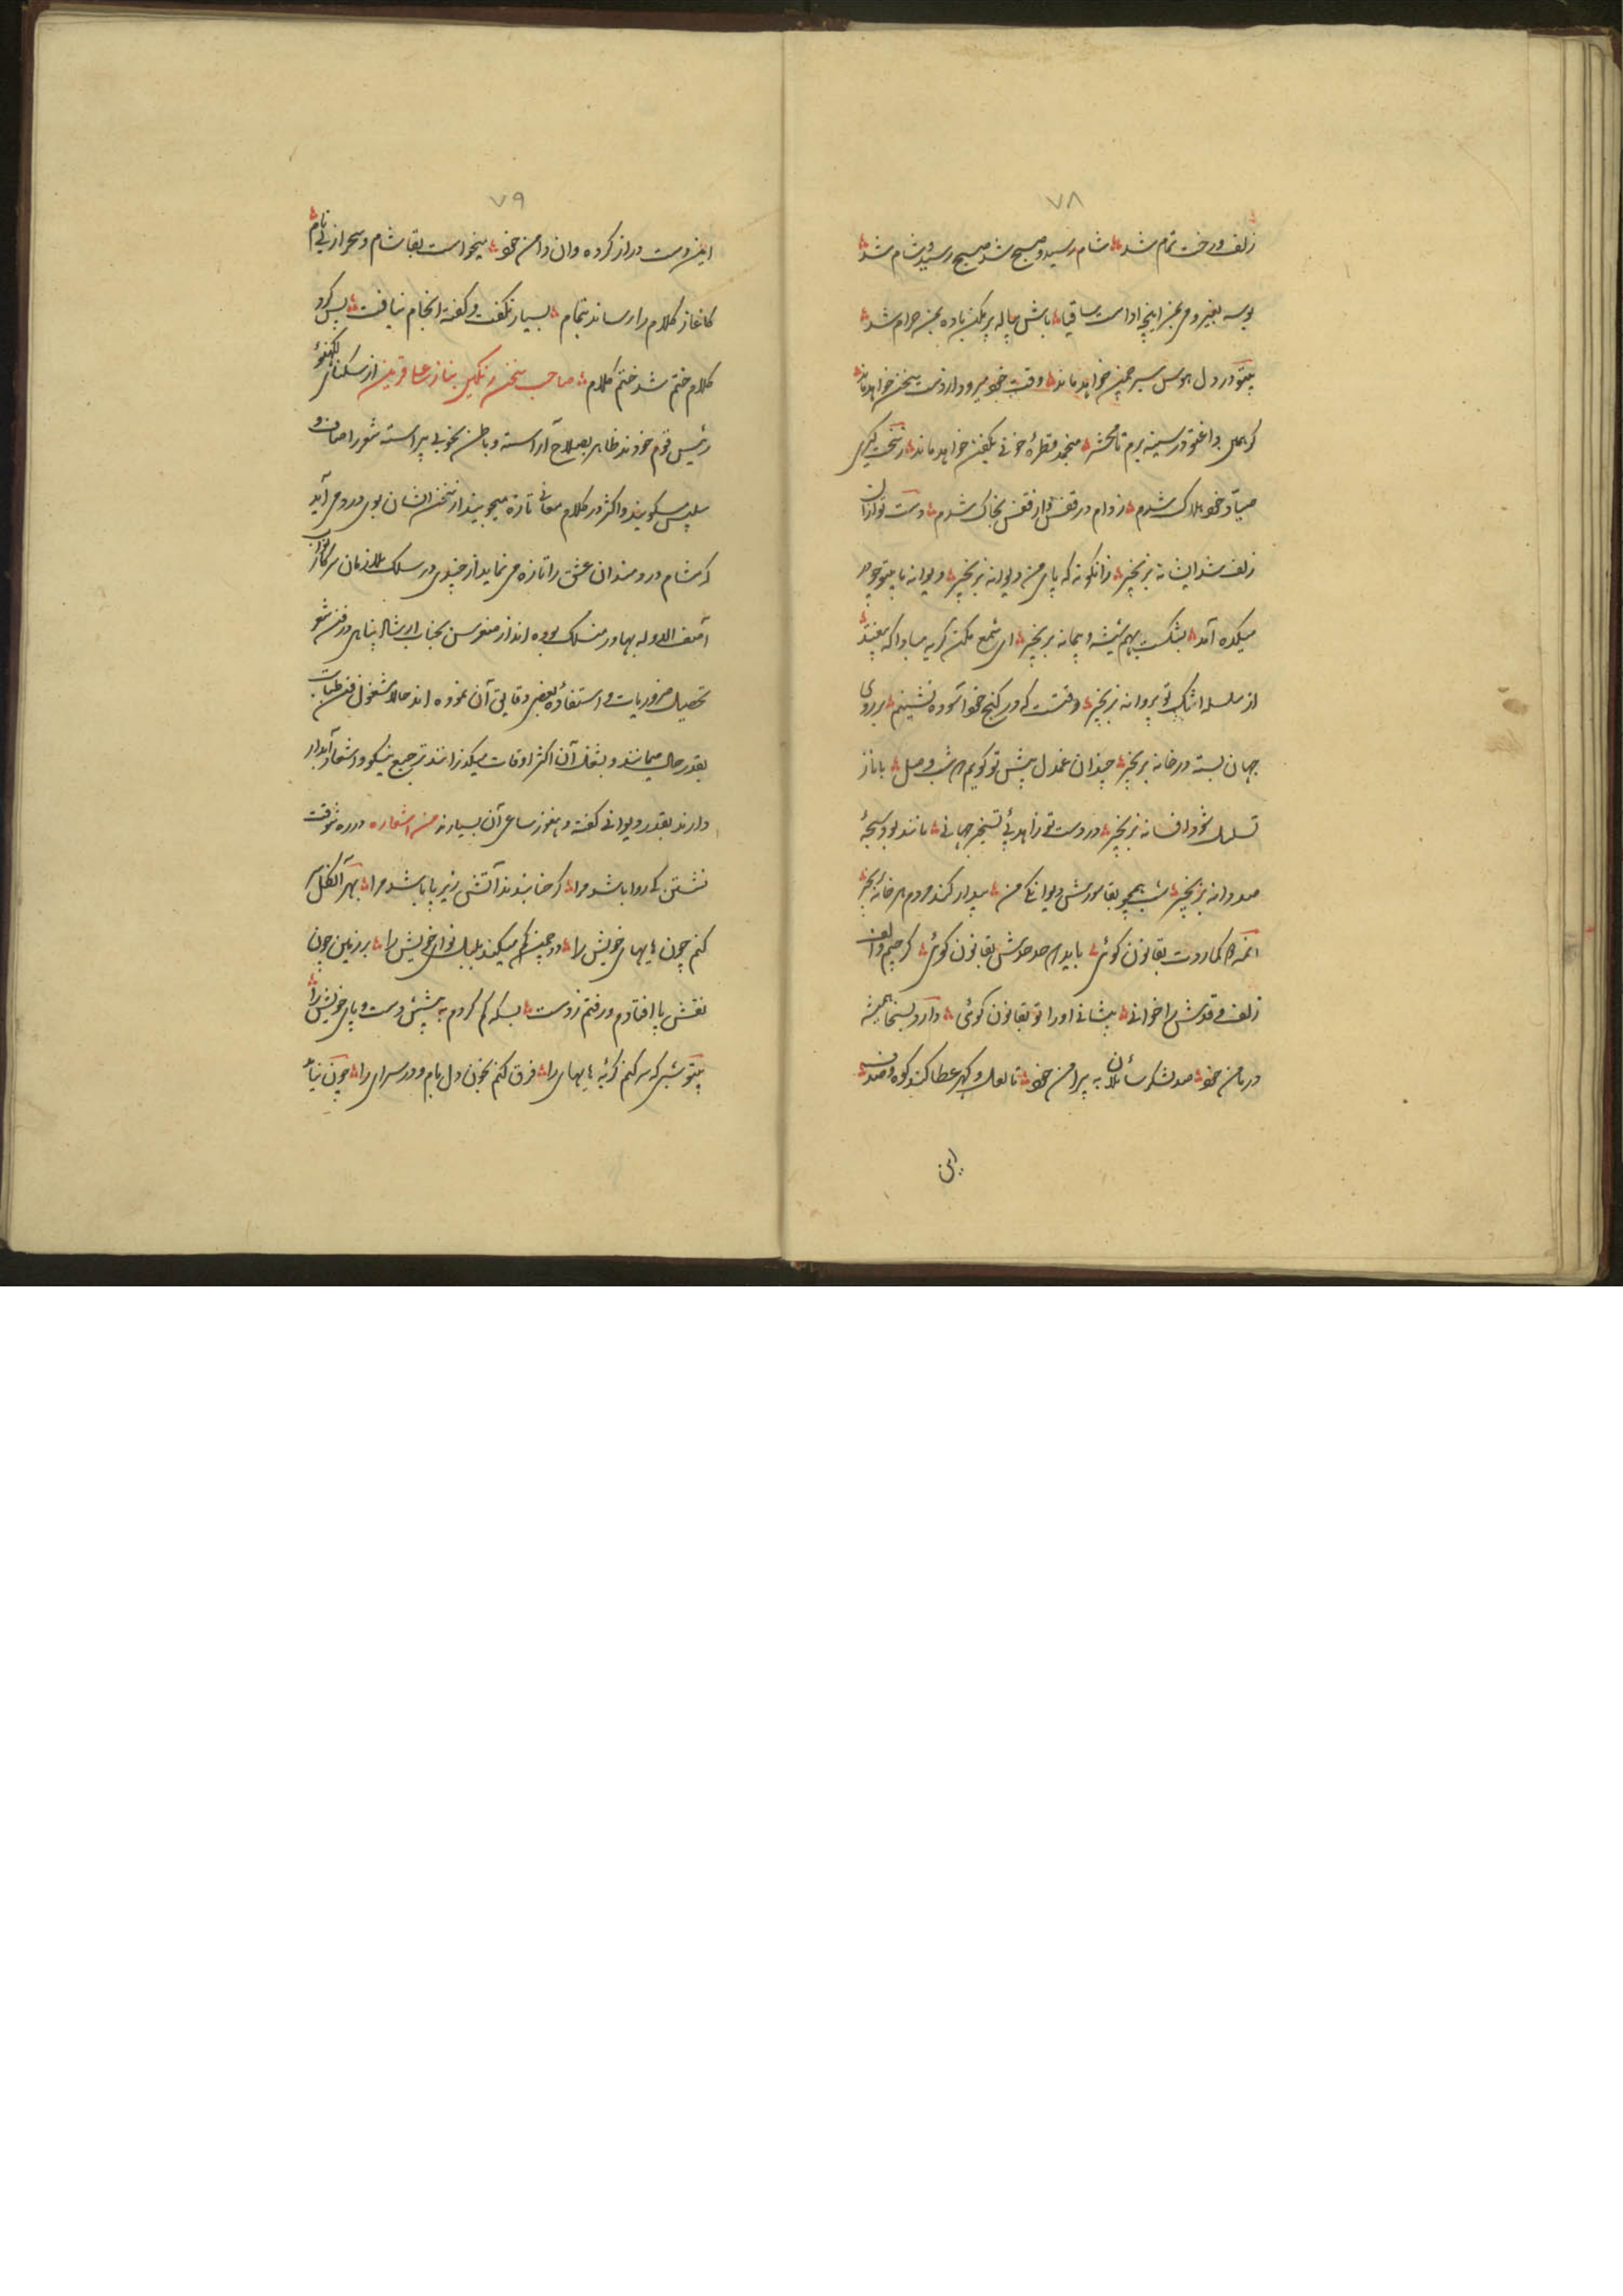 ۷۸
زلف و رخت تمام شد شام رسید و صبح شد صبح رسید و شام شد
بوسه بغیر و می بمن اینچه اداست ساقیا باش پیاله پر مکن باده بمن حرام شد
بیتو در دل هوس سیر چمن خواهد ماند وقت خود میرود از دست سخن خواهد ماند
بداغ تو در سینه برم تا محشر منجمد قطرهٔ خونی بکفن خواهد ماند
صیاد خود هلاک شدم ز دام در قفس و از قفس بخاک شدم دست تو از آن
زلف شد ای شانه بزنجیر زانگونه که پای من دیوانه بزنجیر دیوانه بابیتو چو در
میکده آمد بشکست بهم شیشه و پیمانه بزنجیر ای شمع مکن گریه مبادا که بیفتد
از سلسله اشک تو پروانه بزنجیر وقتست که در کنج خود آسوده نشینم بر روی
جهان بسته در خانه بزنجیر چندان غم دل پیش تو گویم شب وصل باز از
تسلسل شود افسانه بزنجیر در دست تو زاهد پئ تسخیر جهانی مانند بود سبحهٔ
صد دانه بزنجیر شب همچو بقا شورش دیوانگی من بیدار کند مردم هر خانه بزنجیر
بقانون گوئی باید صد بقانون گوئی گر چشم و الف
زلف و قدش را خوانی پیشانی او را تو بقانون گوئی دارد بسخا همیشه
در دامن خود صد لشکر سائلان به پیرامن خود تا لعل و گهر عطا کند کوه و معدن
این
۷۹
این دست دراز کرده و آن دامن خود میخواست بقا شام و سحر از پی نام
کاغاز کلام را رساند بتمام بسیار نگفت و گفته انجام نیافت پس کرد
کلام ختم شد ختم کلام صاحب سخن رنگین از سکنای لکهنؤ
رئیس قوم خودند ظاهر بصلاح آراسته و باطن بخوبی پیراسته شعر را صاف و
سلیس میگویند و اکثر در کلام معانی تازه میجویند از سخن ایشان بوی درد می آید
که مشام دردمندان عشق را تازه می نماید از چندی در سلک ملازمان سرکار نواب
آصف الدوله بهادر منسلک بوده اند از جناب ارشاد پناهی در فن شعر
تحصیل ضروریات و استفادهٔ بعضی دقایق آن نموده اند حالا مشغول فن طبابت
بقدر حال میباشند و بشغل آن اکثر اوقات میگذرانند ترجیع نیکو و اشعار آبدار
دارند بقدر دیوانی گفته و هنوز ساعی آن بسیارند من اشعاره در ره شوقت
نشستن کی روا باشد مرا گر حنا بندند آتش زیر پا باشد مرا بهر آن گل سر
کنم چون های های خویش را در چمن گم میکند بلبل نوای خویش را بر زمین چون
نقش پا افتادم و رفتم ز دست بسکه گم کردم به پیشش دست و پای خویش را
بیتو شبی که سر کنم گریهٔ های های را غرق کنم بخون دل بام و در سرای را چون